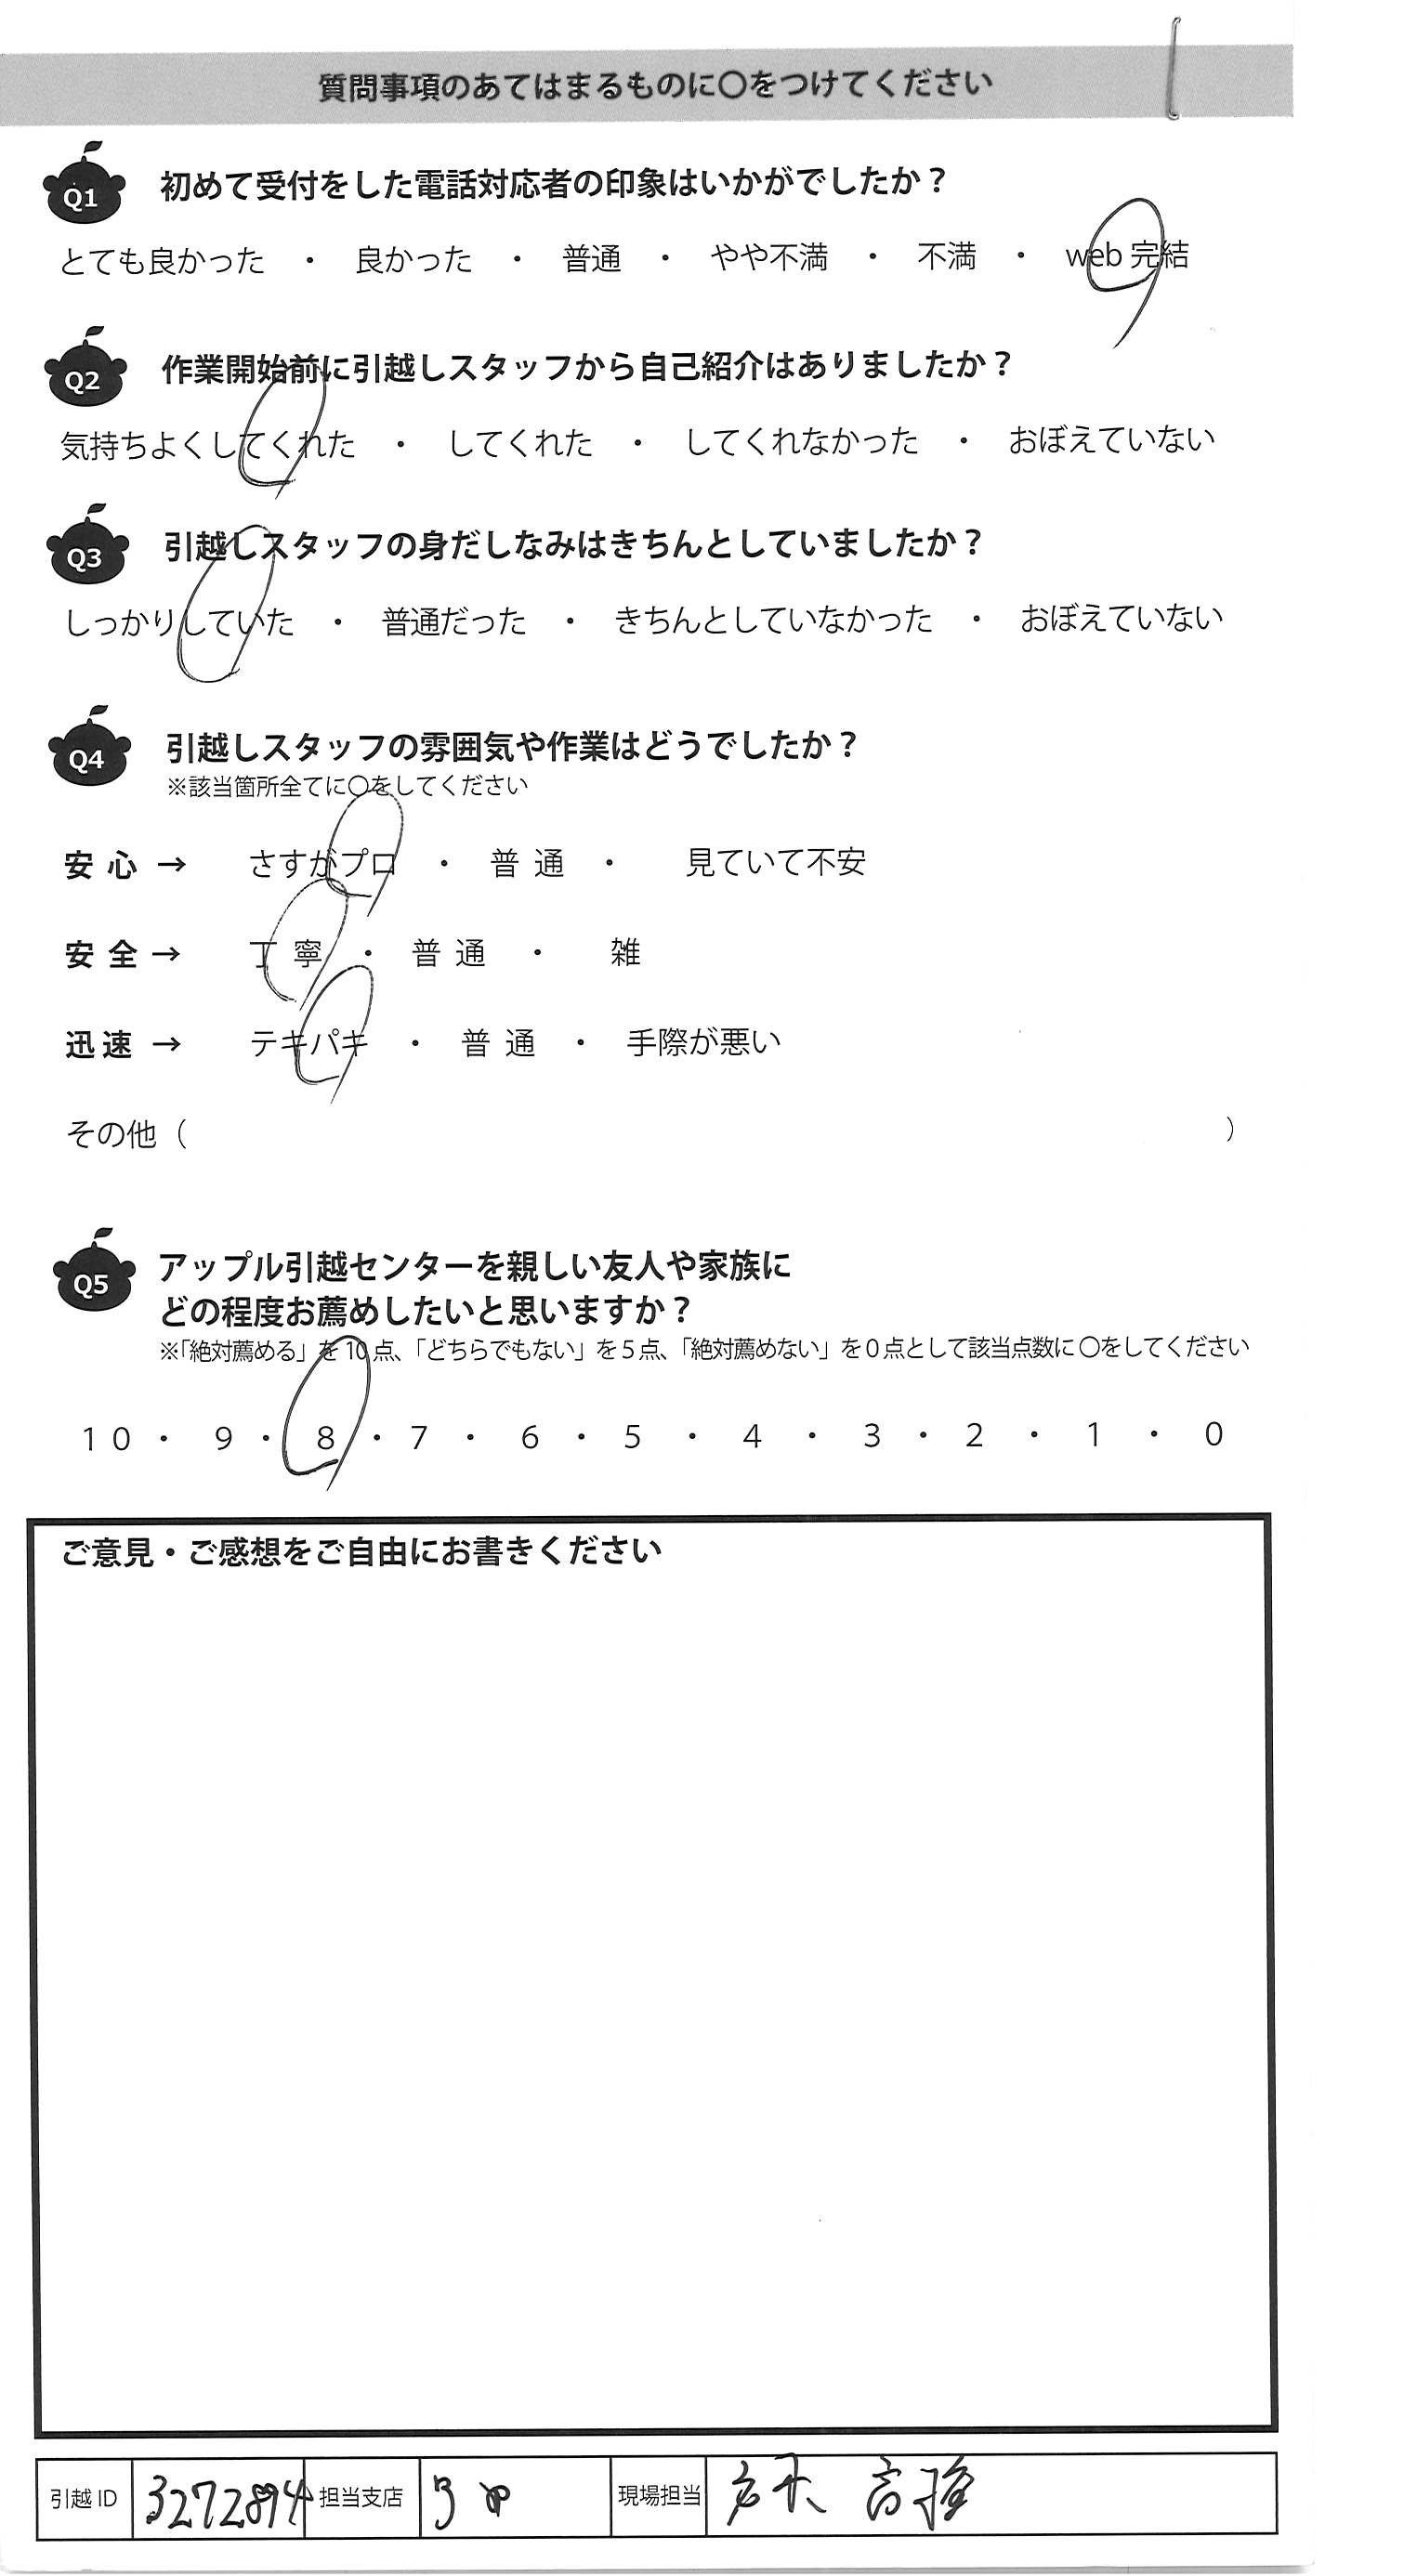 質問事項のあてはまるものに〇をつけてください
Q1 初めて受付をした電話対応者の印象はいかがでしたか？
とても良かった ・ 良かった ・ 普通 ・ やや不満 ・ 不満 ・ web 完結
Q2 作業開始前に引越しスタッフから自己紹介はありましたか？
気持ちよくしてくれた ・ してくれた ・ してくれなかった ・ おぼえていない
Q3 引越しスタッフの身だしなみはきちんとしていましたか？
しっかりしていた ・ 普通だった ・ きちんとしていなかった ・ おぼえていない
Q4 引越しスタッフの雰囲気や作業はどうでしたか？
※該当箇所全てに〇をしてください
安心 → さすがプロ ・ 普通 ・ 見ていて不安
安全 → 丁寧 ・ 普通 ・ 雑
迅速 → テキパキ ・ 普通 ・ 手際が悪い
その他（ ）
Q5 アップル引越センターを親しい友人や家族に
どの程度お薦めしたいと思いますか？
※「絶対薦める」を 10 点、「どちらでもない」を 5 点、「絶対薦めない」を 0 点として該当点数に 〇をしてください
10 ・ 9 ・ 8 ・ 7 ・ 6 ・ 5 ・ 4 ・ 3 ・ 2 ・ 1 ・ 0
ご意見・ご感想をご自由にお書きください
引越 ID 3272894 担当支店 現場担当